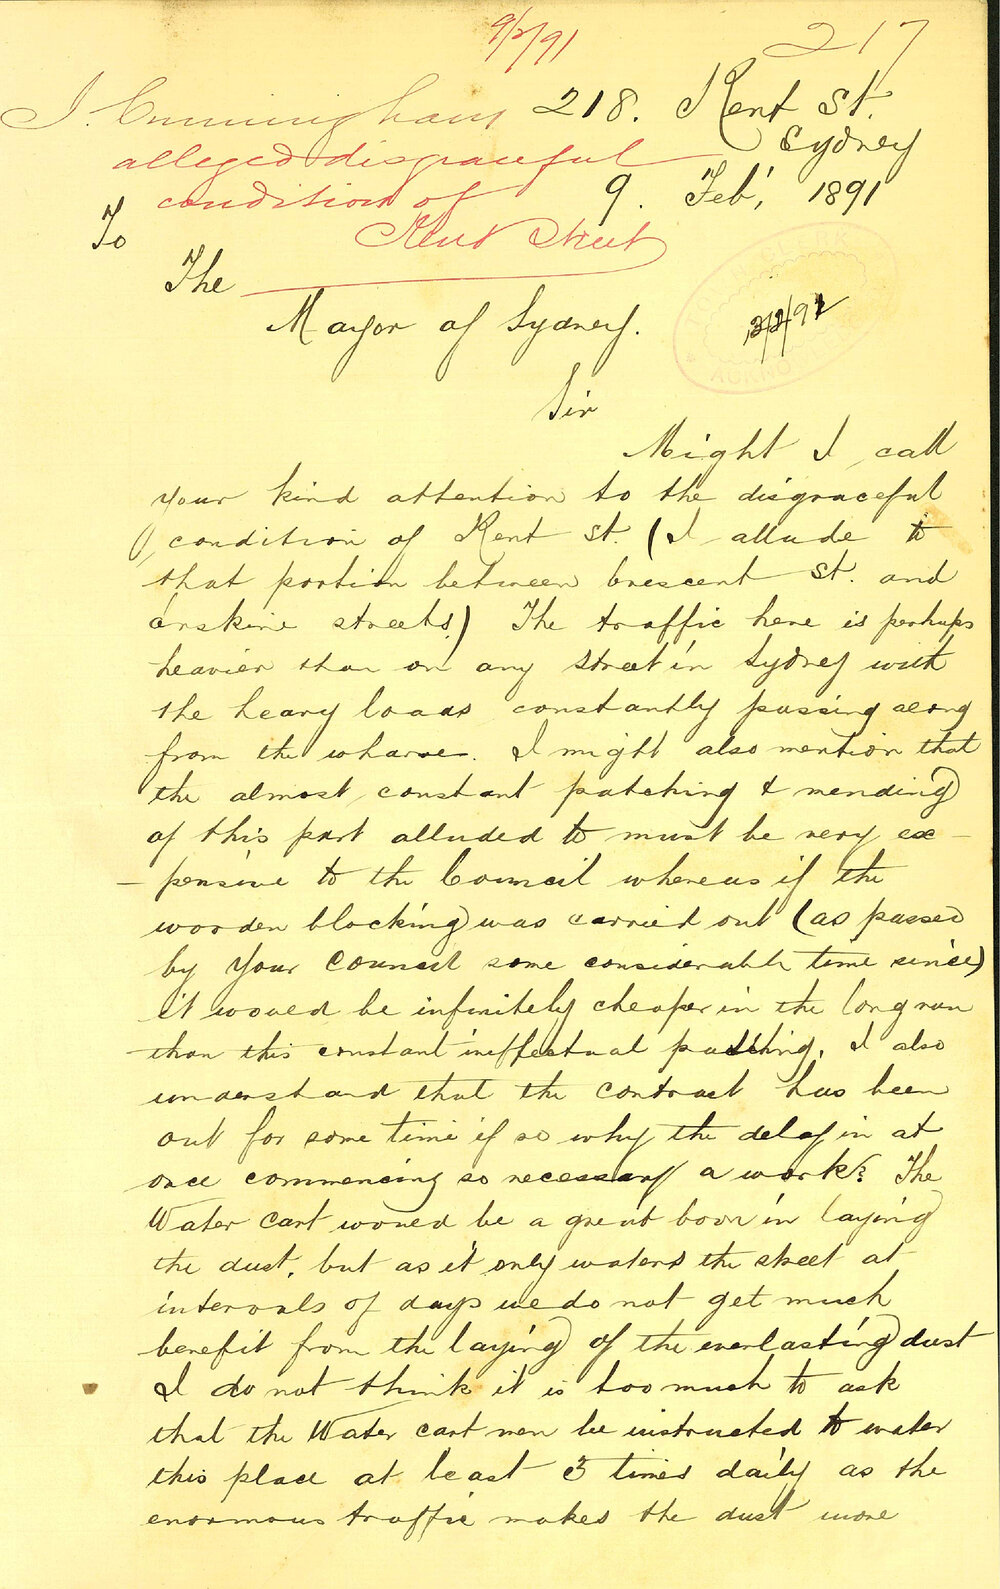 9/2/91
217
J. Cunningham
218. Kent St.
Sydney
alleged disgraceful
condition of
Kent Street
9. Feb, 1891
To
The
Mayor of Sydney.
Sir
Might I call
your kind attention to the disgraceful
condition of Kent St. (I allude to
that portion between Crescent St. and
Erskine streets.) The traffic here is perhaps
heavier than on any street in Sydney with
the heavy loads constantly passing along
from the wharves. I might also mention that
the almost constant patching & mending
of this part alluded to must be very ex-
-pensive to the Council whereas if the
wooden blocking was carried out (as passed
by your Council some considerable time since)
it would be infinitely cheaper in the long run
than this constant ineffectual patching. I also
understand that the contract has been
out for some time if so why the delay in at
once commencing so necessary a work? The
Water cart would be a great boon in laying
the dust, but as it only waters the street at
intervals of days we do not get much
benefit from the laying of the everlasting dust
I do not think it is too much to ask
that the Water cart men be instructed to water
this place at least 3 times daily as the
enormous traffic makes the dust more